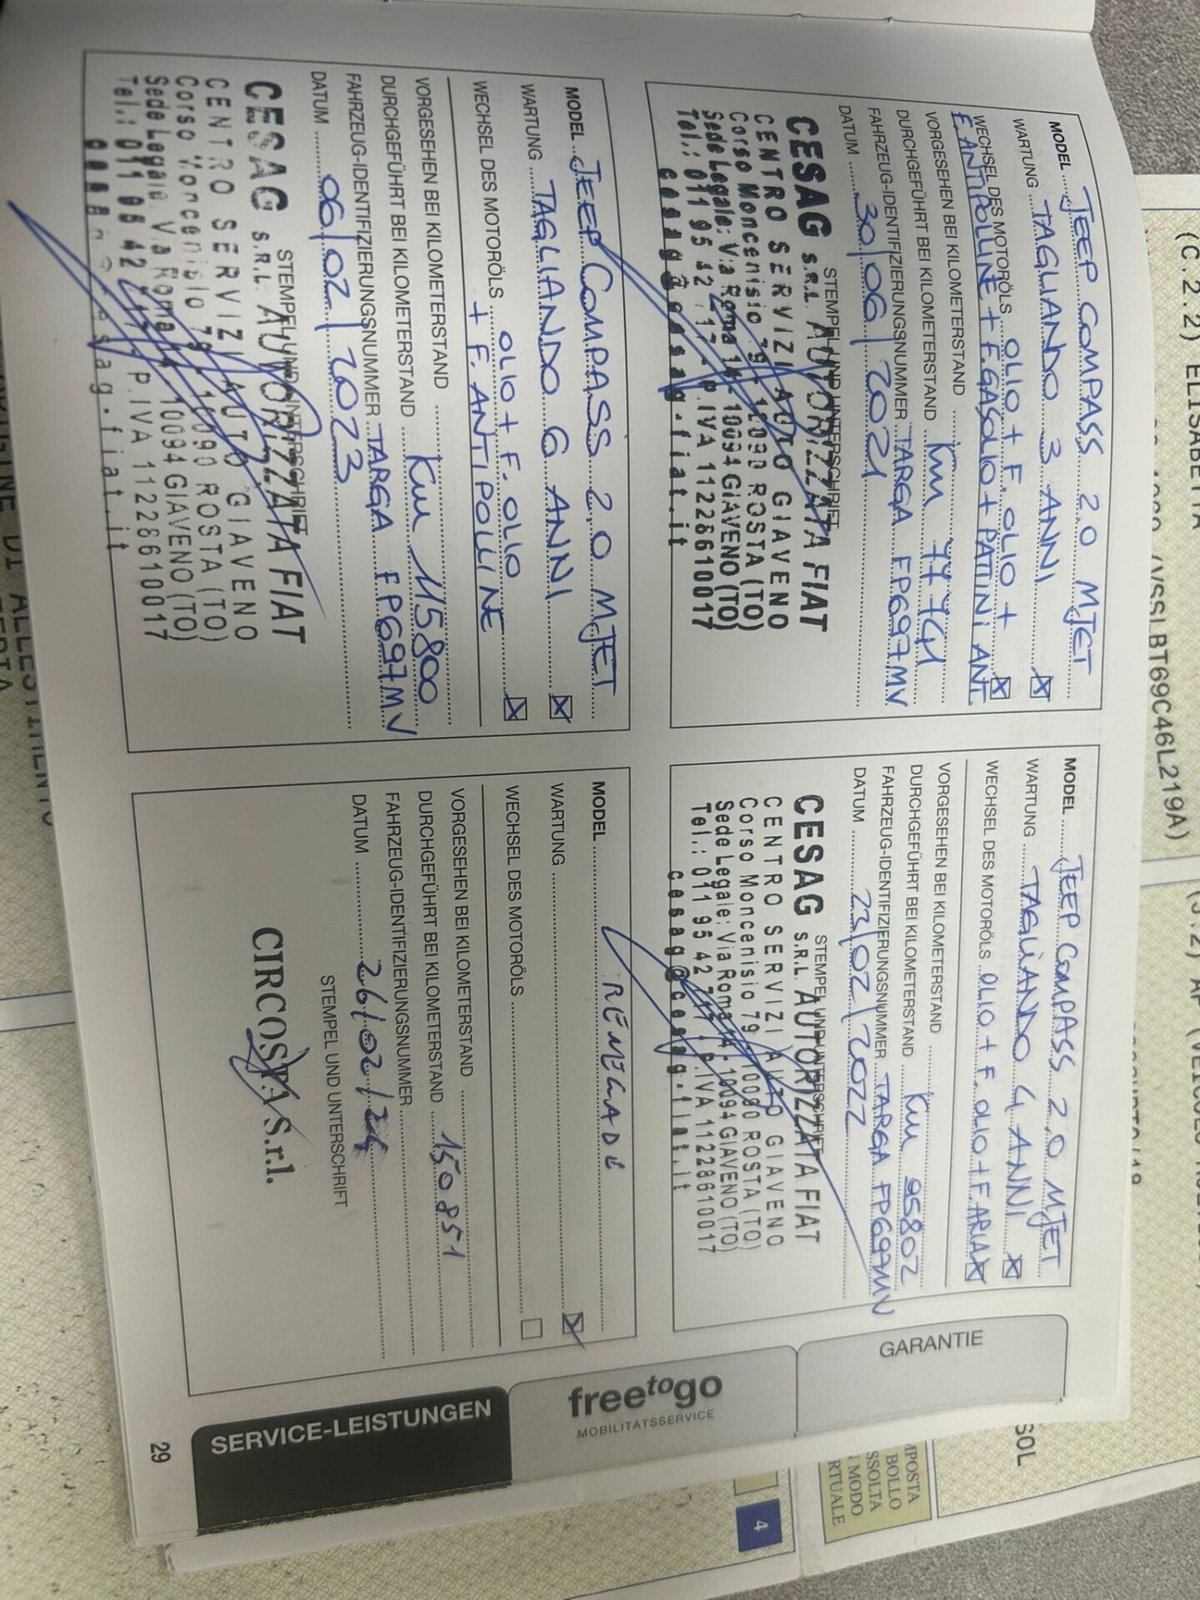 MODEL JEEP COMPASS 2.0 MJET
WARTUNG TAGLIANDO 3 ANNI
WECHSEL DES MOTORÖLS OLIO + F. OLIO +
F. ANTIPOLLINE + F. GASOLIO + PATINI ANT.
VORGESEHEN BEI KILOMETERSTAND
DURCHGEFÜHRT BEI KILOMETERSTAND KM 77741
FAHRZEUG-IDENTIFIZIERUNGSNUMMER TARGA FP697MV
DATUM 30/06/2021
STEMPEL UND UNTERSCHRIFT
CESAG s.r.l. AUTORIZZATA FIAT
CENTRO SERVIZI AUTO GIAVENO
Corso Moncenisio 79 - 10090 ROSTA (TO)
Sede Legale: Via Roma 14 - 10094 GIAVENO (TO)
Tel.: 011 95 42 717 - P.IVA 11228610017
cesag@cesag-fiat.it
MODEL JEEP COMPASS 2.0 MJET
WARTUNG TAGLIANDO 4 ANNI
WECHSEL DES MOTORÖLS OLIO + F. OLIO + F. ARIA
VORGESEHEN BEI KILOMETERSTAND
DURCHGEFÜHRT BEI KILOMETERSTAND KM 95802
FAHRZEUG-IDENTIFIZIERUNGSNUMMER TARGA FP697MV
DATUM 23/02/2022
STEMPEL UND UNTERSCHRIFT
CESAG s.r.l. AUTORIZZATA FIAT
CENTRO SERVIZI AUTO GIAVENO
Corso Moncenisio 79 - 10090 ROSTA (TO)
Sede Legale: Via Roma 14 - 10094 GIAVENO (TO)
Tel.: 011 95 42 717 - P.IVA 11228610017
cesag@cesag-fiat.it
MODEL JEEP COMPASS 2.0 MJET
WARTUNG TAGLIANDO 6 ANNI
WECHSEL DES MOTORÖLS OLIO + F. OLIO
+ F. ANTIPOLLINE
VORGESEHEN BEI KILOMETERSTAND
DURCHGEFÜHRT BEI KILOMETERSTAND KM 115800
FAHRZEUG-IDENTIFIZIERUNGSNUMMER TARGA FP697MV
DATUM 06/02/2023
STEMPEL UND UNTERSCHRIFT
CESAG s.r.l. AUTORIZZATA FIAT
CENTRO SERVIZI AUTO GIAVENO
Corso Moncenisio 79 - 10090 ROSTA (TO)
Sede Legale: Via Roma 14 - 10094 GIAVENO (TO)
Tel.: 011 95 42 717 - P.IVA 11228610017
cesag@cesag-fiat.it
MODEL RENEGADE
WARTUNG
WECHSEL DES MOTORÖLS
VORGESEHEN BEI KILOMETERSTAND
DURCHGEFÜHRT BEI KILOMETERSTAND 150851
FAHRZEUG-IDENTIFIZIERUNGSNUMMER
DATUM 26/02/24
STEMPEL UND UNTERSCHRIFT
CIRCOSTA S.r.l.
GARANTIE
freetogo
MOBILITÄTSSERVICE
SERVICE-LEISTUNGEN
29
(C.2.2) ELISABETTA
(VSSLBT69C46L219A)
4